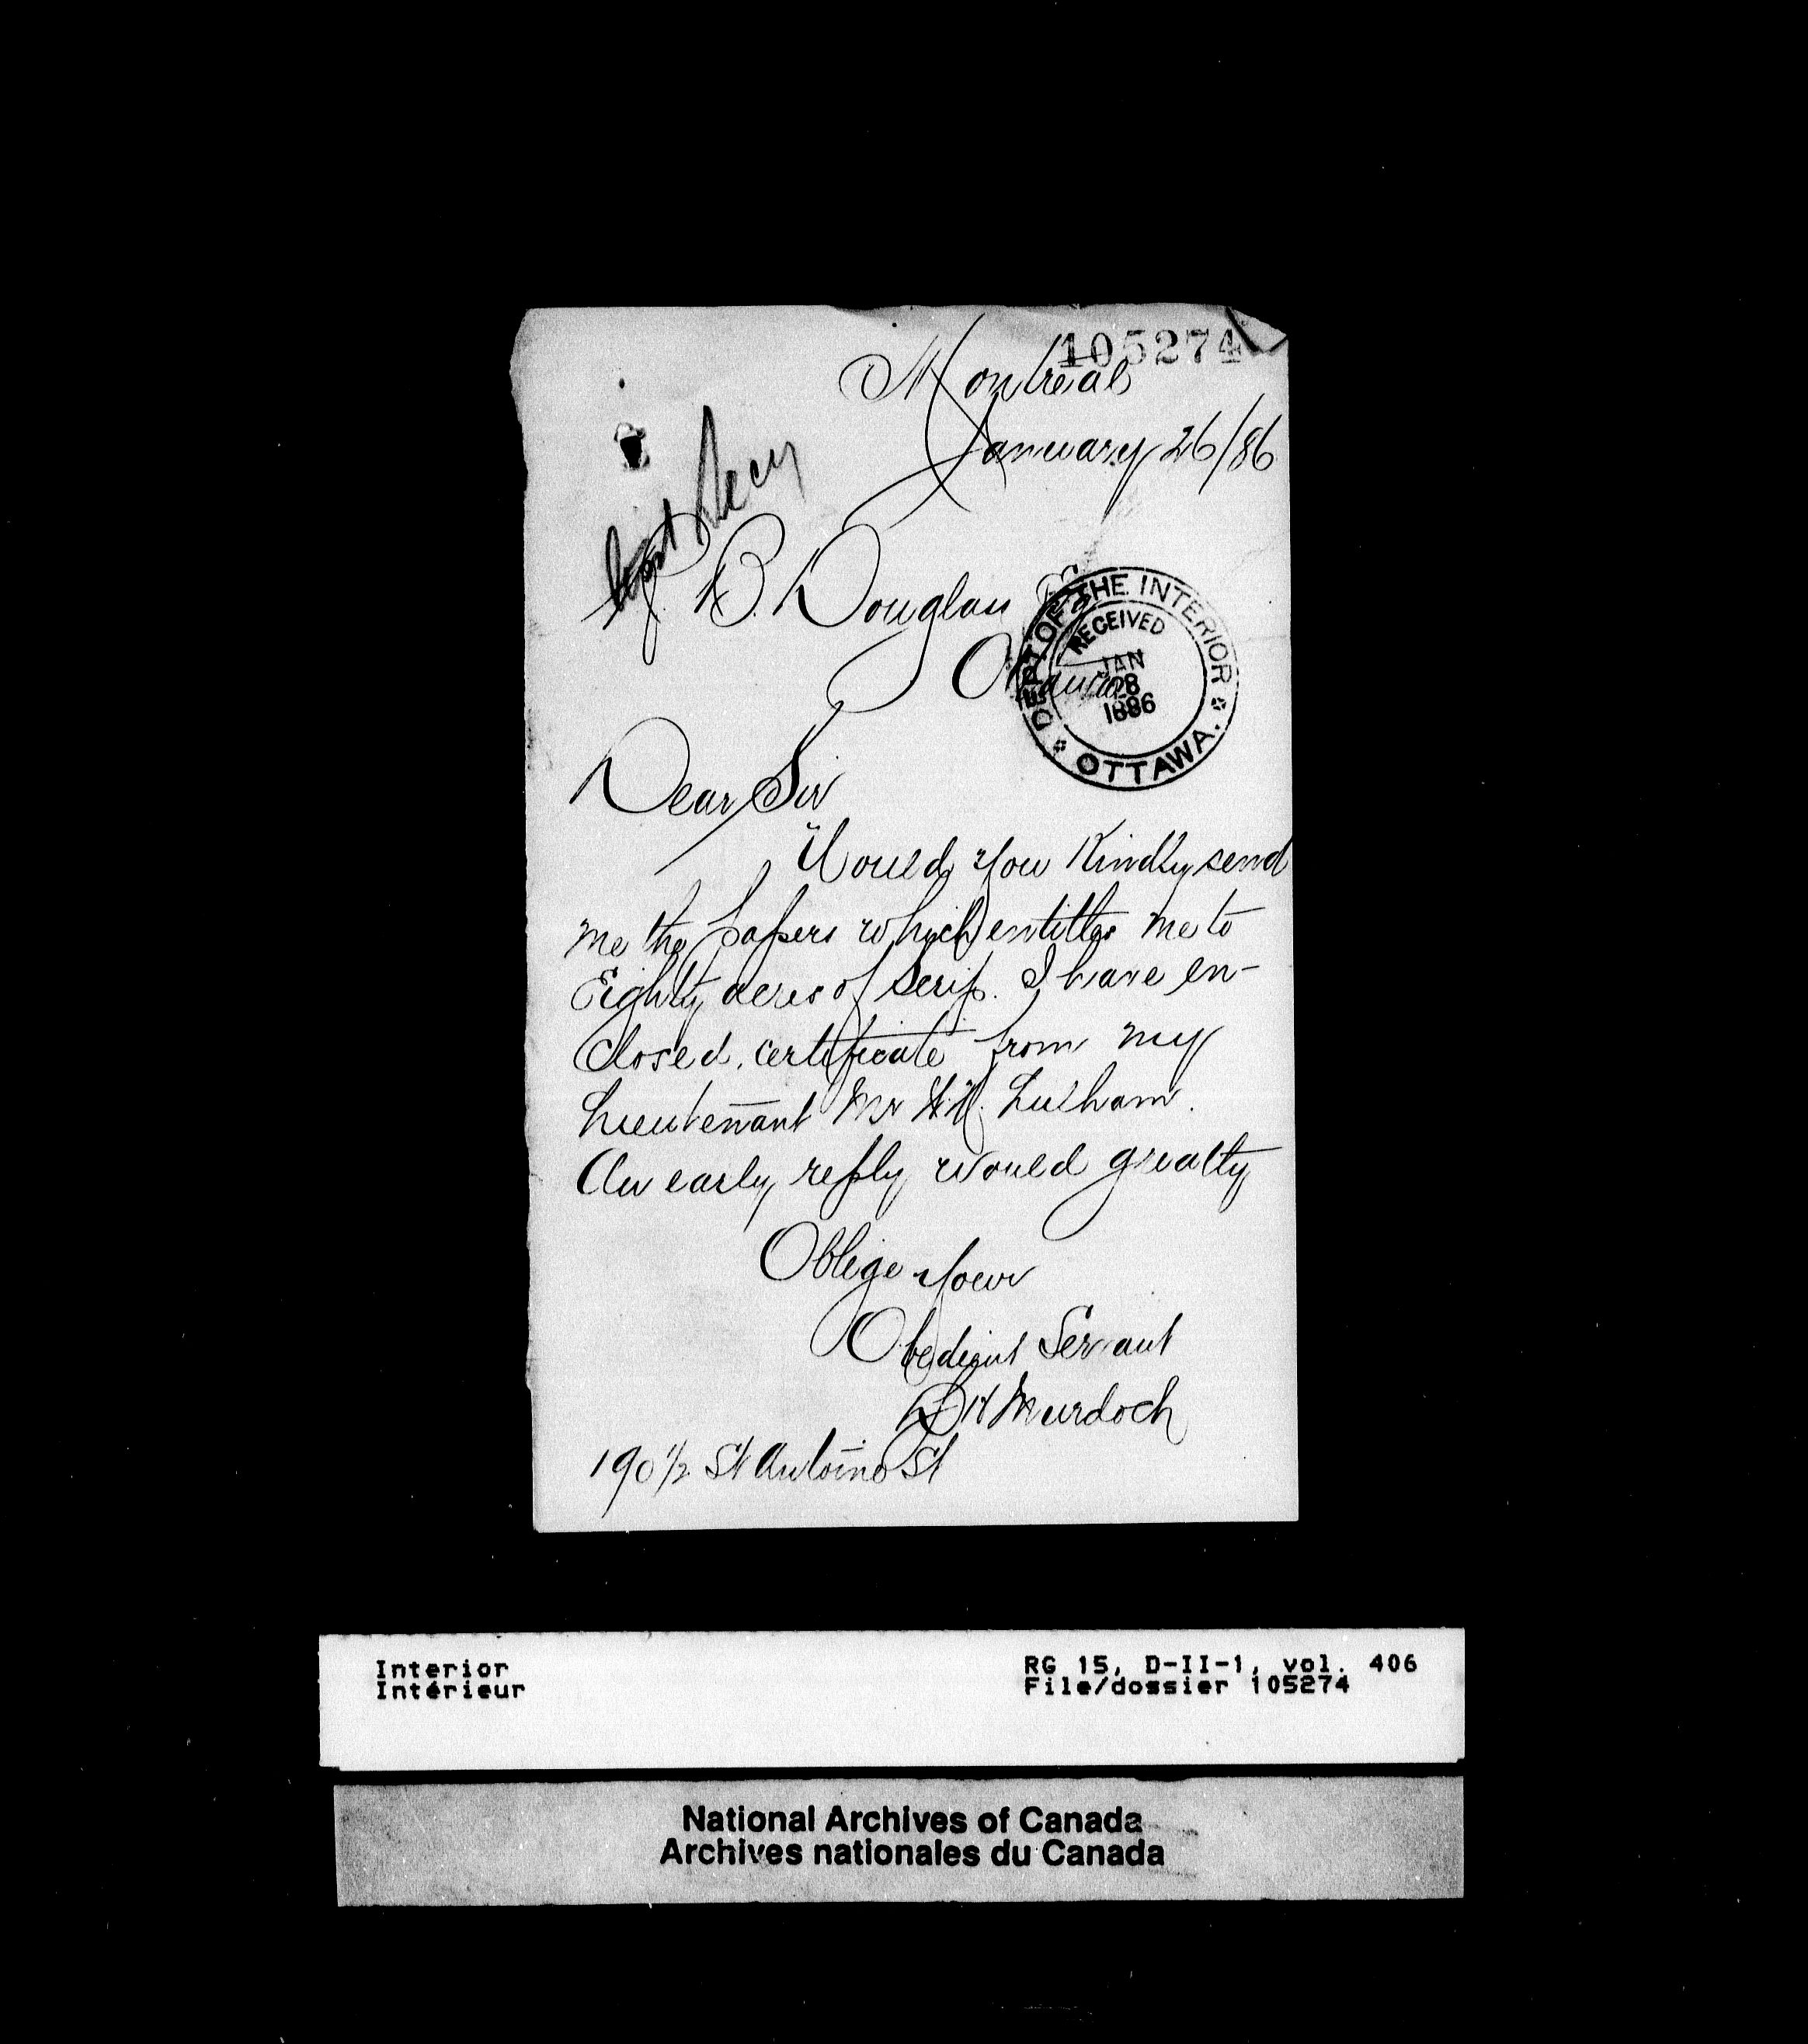 105274
Montreal
January 26/86
J. B. Douglas
Ottawa
DEPT OF THE INTERIOR
RECEIVED
JAN
28
1886
OTTAWA.
Dear Sir
Would you Kindly send
me the papers which entitles me to
Eighty acres of Scrip. I have en-
closed certificate from my
Lieutenant Mr Lulham.
An early reply would greatly
Oblige your
Obedient Servant
D H Murdoch
190 1/2 St Antoine St
Interior
Intérieur
RG 15, D-II-1, vol. 406
File/dossier 105274
National Archives of Canada
Archives nationales du Canada